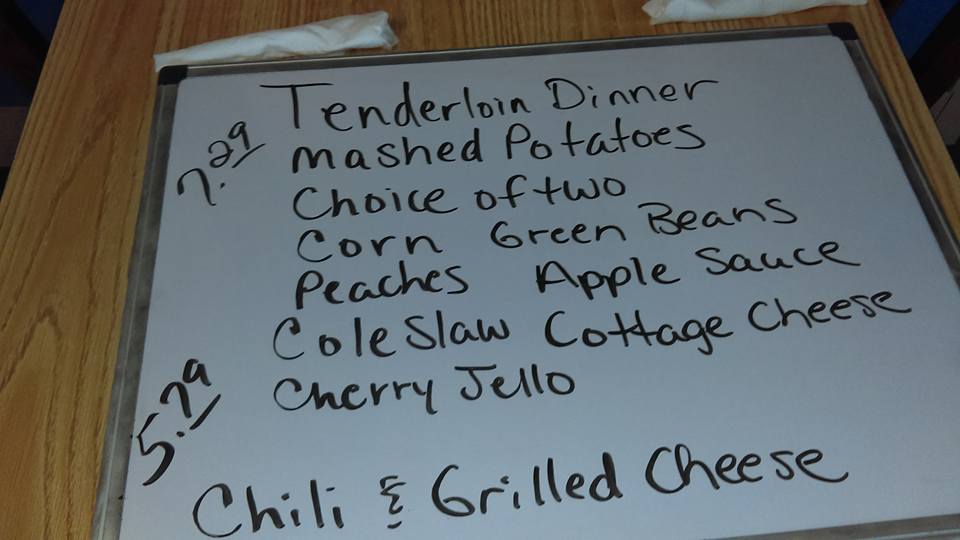 Tenderloin Dinner
7.29
Mashed Potatoes
Choice of two
Corn Green Beans
Peaches Apple Sauce
Cole Slaw Cottage Cheese
Cherry Jello
5.79
Chili & Grilled Cheese